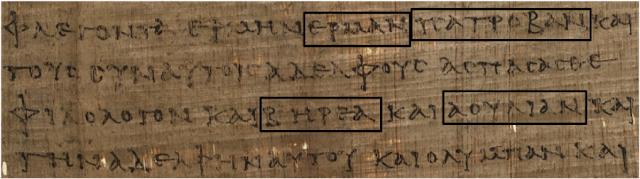 ΦΛΕΓΟΝΤΑ ΕΡΜΗΝ ΕΡΜΑΝ ΠΑΤΡΟΒΑΝ ΚΑΙ
ΤΟΥϹ ϹΥΝ ΑΥΤΟΙϹ ΑΔΕΛΦΟΥϹ ΑϹΠΑϹΑϹΘΕ
ΦΙΛΟΛΟΓΟΝ ΚΑΙ ΒΗΡΕΑ ΚΑΙ ΑΟΥΛΙΑΝ ΚΑΙ
ΤΗΝ ΑΔΕΛΦΗΝ ΑΥΤΟΥ ΚΑΙ ΟΛΥΜΠΑΝ ΚΑΙ